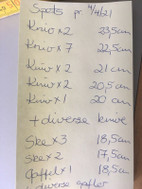 Spots pr 4/4/21
Kniv x 2 23,5cm
Kniv x 7 22,5cm
Kniv x 2 21 cm
Kniv x 2 20,5 cm
Kniv x 1 20 cm
+ diverse knive
Ske x 3 18,5cm
Ske x 2 17,5cm
Gaffel x 1 18,5cm
diverse gafler